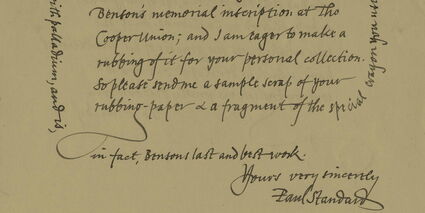 Benson's memorial inscription at the
Cooper Union; and I am eager to make a
rubbing of it for your personal collection.
So please send me a sample scrap of your
rubbing-paper & a fragment of the special
crayon
with palladium, and is,
in fact, Benson's last and best work.
Yours very sincerely
Paul Standard